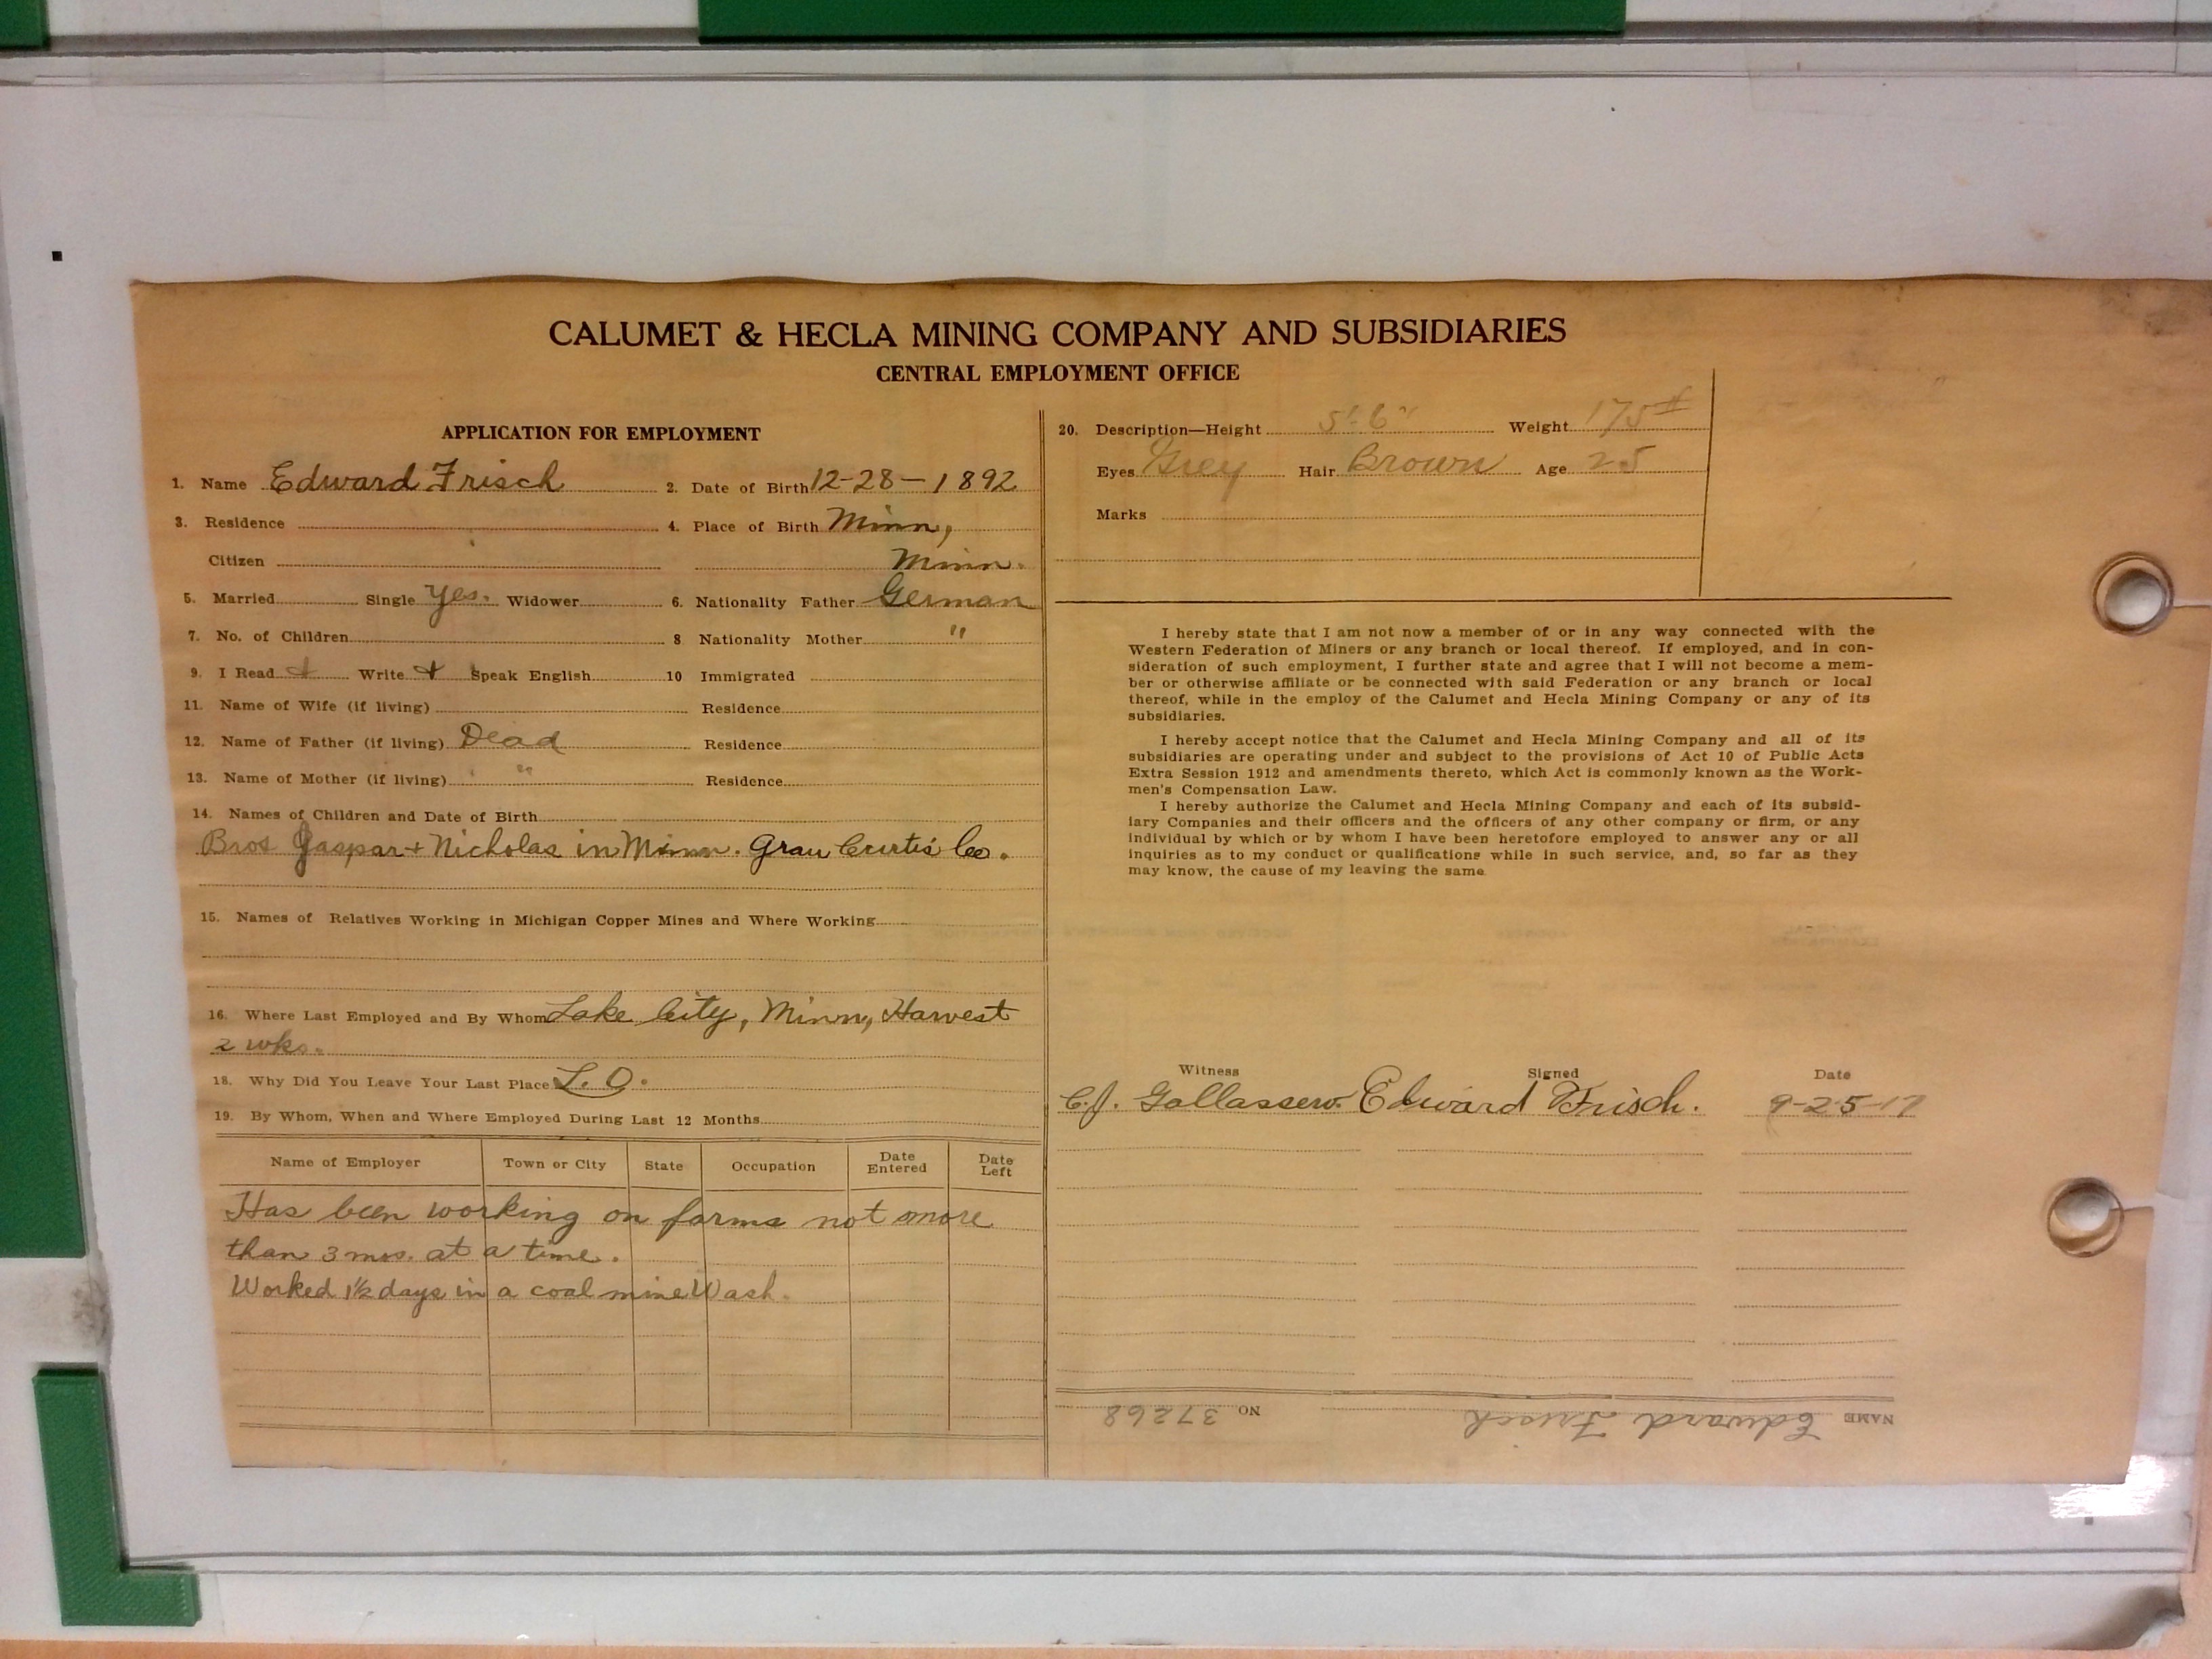 CALUMET & HECLA MINING COMPANY AND SUBSIDIARIES
CENTRAL EMPLOYMENT OFFICE
APPLICATION FOR EMPLOYMENT
1. Name Edward Frisch 2. Date of Birth 12-28-1892
3. Residence 4. Place of Birth Minn,
Citizen Minn.
5. Married Single Yes. Widower 6. Nationality Father German
7. No. of Children 8 Nationality Mother "
9. I Read + Write + Speak English 10 Immigrated
11. Name of Wife (if living) Residence
12. Name of Father (if living) Dead Residence
13. Name of Mother (if living) " Residence
14. Names of Children and Date of Birth
Bros Gaspar + Nicholas in Minn. Curtis Co.
15. Names of Relatives Working in Michigan Copper Mines and Where Working
16. Where Last Employed and By Whom Lake City, Minn, Harvest
2 wks.
18. Why Did You Leave Your Last Place L.O.
19. By Whom, When and Where Employed During Last 12 Months
Name of Employer Town or City State Occupation Date Entered Date Left
Has been working on farms not more
than 3 mos. at a time.
Worked 1½ days in a coal mine Wash.
20. Description—Height 5'-6" Weight 175#
Eyes Grey Hair Brown Age 25
Marks
I hereby state that I am not now a member of or in any way connected with the
Western Federation of Miners or any branch or local thereof. If employed, and in con-
sideration of such employment, I further state and agree that I will not become a mem-
ber or otherwise affiliate or be connected with said Federation or any branch or local
thereof, while in the employ of the Calumet and Hecla Mining Company or any of its
subsidiaries.
I hereby accept notice that the Calumet and Hecla Mining Company and all of its
subsidiaries are operating under and subject to the provisions of Act 10 of Public Acts
Extra Session 1912 and amendments thereto, which Act is commonly known as the Work-
men's Compensation Law.
I hereby authorize the Calumet and Hecla Mining Company and each of its subsid-
iary Companies and their officers and the officers of any other company or firm, or any
individual by which or by whom I have been heretofore employed to answer any or all
inquiries as to my conduct or qualifications while in such service, and, so far as they
may know, the cause of my leaving the same.
Witness Signed Date
C.J. Edward Frisch. 9-25-17
NAME Edward Frisch NO 37268